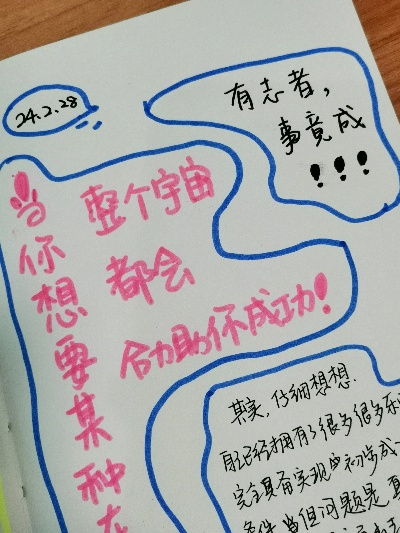 24.2.28
有志者，
事竟成
!!!
当你想要某种
整个宇宙
都会
合力助你成功！
其实，仔细想想，
自己已经拥有了很多很多
完全具备实现的初步成
条件，当但问题是